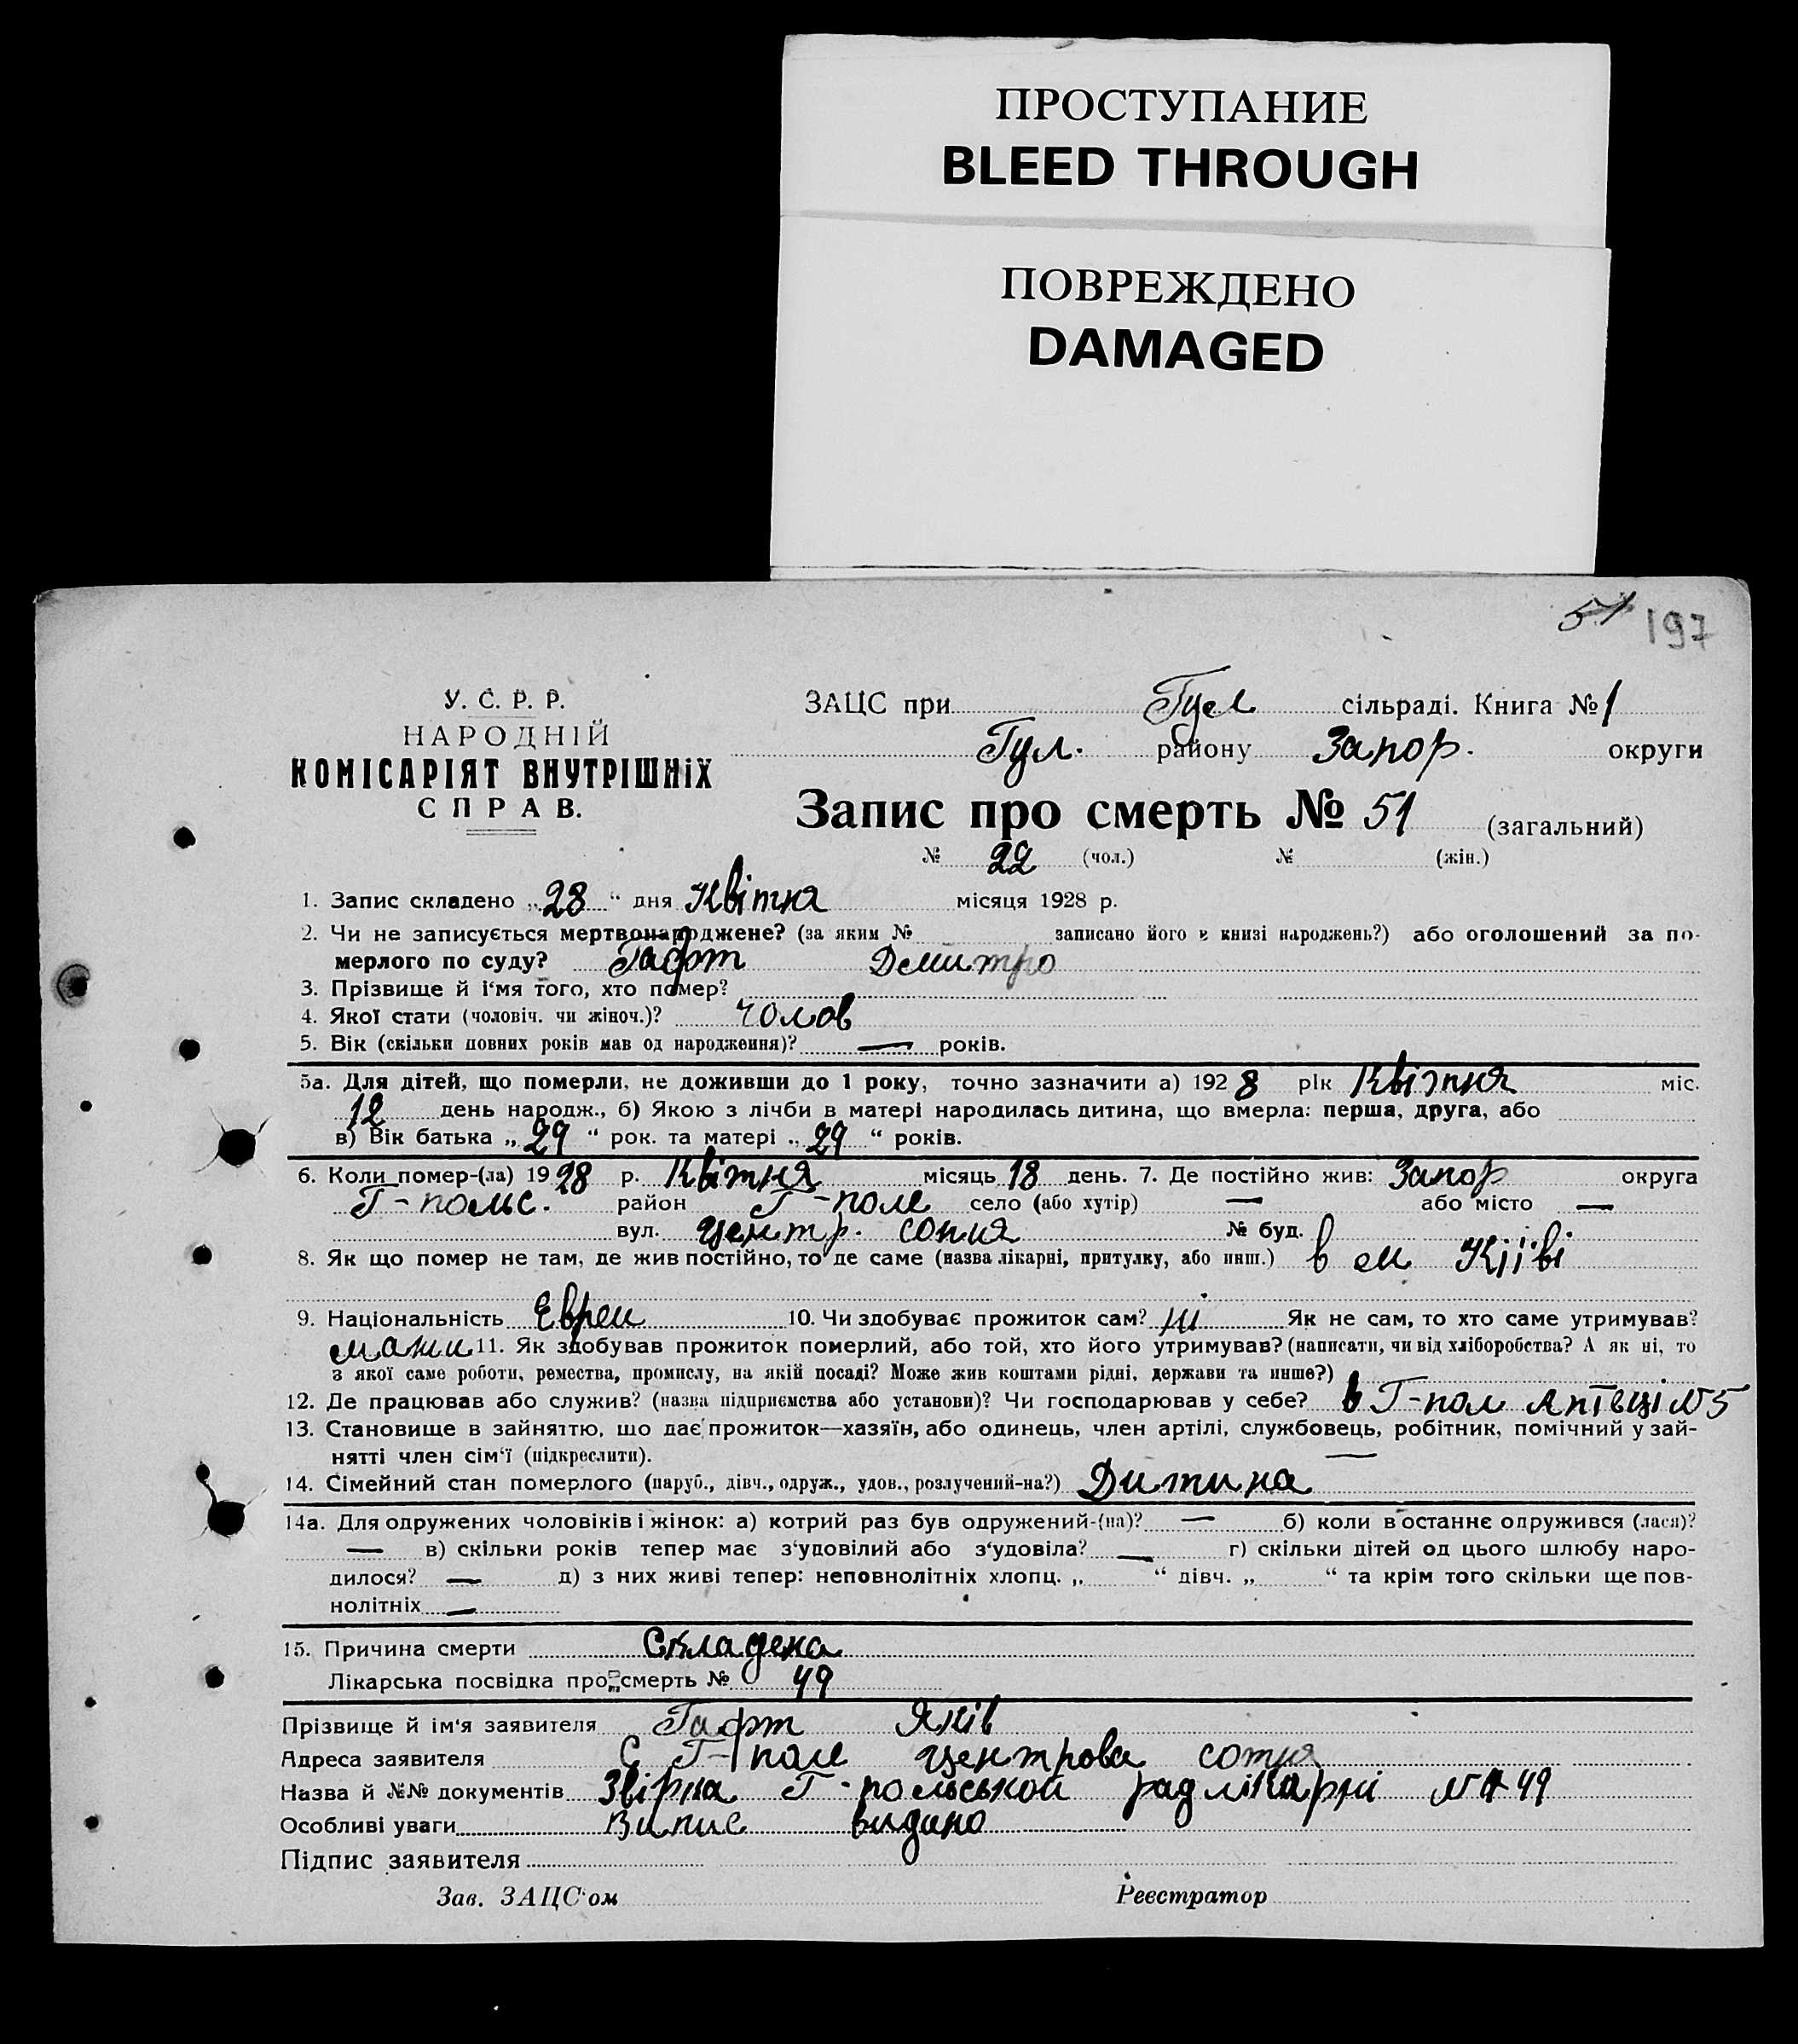 ПРОСТУПАНИЕ
BLEED THROUGH
ПОВРЕЖДЕНО
DAMAGED
51 197
У. С. Р. Р.
НАРОДНІЙ
КОМІСАРІЯТ ВНУТРІШНІХ
СПРАВ.
ЗАЦС при Гул сільраді. Книга № 1
Гул. району Запор. округи
Запис про смерть № 51 (загальний)
№ 22 (чол.) № (жін.)
1. Запис складено „28“ дня Квітня місяця 1928 р.
2. Чи не записується мертвонароджене? (за яким № записано його в книзі народжень?) або оголошений за по-
мерлого по суду? Гафт Дмитро
3. Прізвище й і'мя того, хто помер?
4. Якої стати (чоловіч. чи жіноч.)? чолов
5. Вік (скільки повних років мав од народження)? — років.
5а. Для дітей, що померли, не доживши до 1 року, точно зазначити а) 1928 рік Квітня міс.
12 день народж., б) Якою з лічби в матері народилась дитина, що вмерла: перша, друга, або
в) Вік батька „29“ рок. та матері „29“ років.
6. Коли помер-(ла) 1928 р. Квітня місяць 18 день. 7. Де постійно жив: Запор округа
Г-польс. район Г-поле село (або хутір) — або місто —
вул. центр. сотня № буд.
8. Як що помер не там, де жив постійно, то де саме (назва лікарні, притулку, або инш.) в м Кіїві
9. Національність Евреи 10. Чи здобуває прожиток сам? ні Як не сам, то хто саме утримував?
мати 11. Як здобував прожиток померлий, або той, хто його утримував? (написати, чи від хліборобства? А як ні, то
з якої саме роботи, ремества, промислу, на якій посаді? Може жив коштами рідні, держави та инше?)
12. Де працював або служив? (назва підприємства або установи)? Чи господарював у себе? в Г-пол Аптеці №5
13. Становище в зайняттю, що дає прожиток—хазяїн, або одинець, член артілі, службовець, робітник, помічний у зай-
нятті член сім'ї (підкреслити). —
14. Сімейний стан померлого (паруб., дівч., одруж., удов., розлучений-на?) Дитина
14а. Для одружених чоловіків і жінок: а) котрий раз був одружений-(на)? — б) коли в останнє одружився (лася)?
— в) скільки років тепер має з'удовілий або з'удовіла? — г) скільки дітей од цього шлюбу наро-
дилося? — д) з них живі тепер: неповнолітніх хлопц. „ “ дівч. „ “ та крім того скільки ще пов-
нолітніх —
15. Причина смерти Складена
Лікарська посвідка про смерть № 49
Прізвище й ім'я заявителя Гафт Яків
Адреса заявителя С Г-поле центрова сотня
Назва й №№ документів Звірка Г-польської рад лікарні № 49
Особливі уваги Випис видано
Підпис заявителя
Зав. ЗАЦС'ом Реєстратор